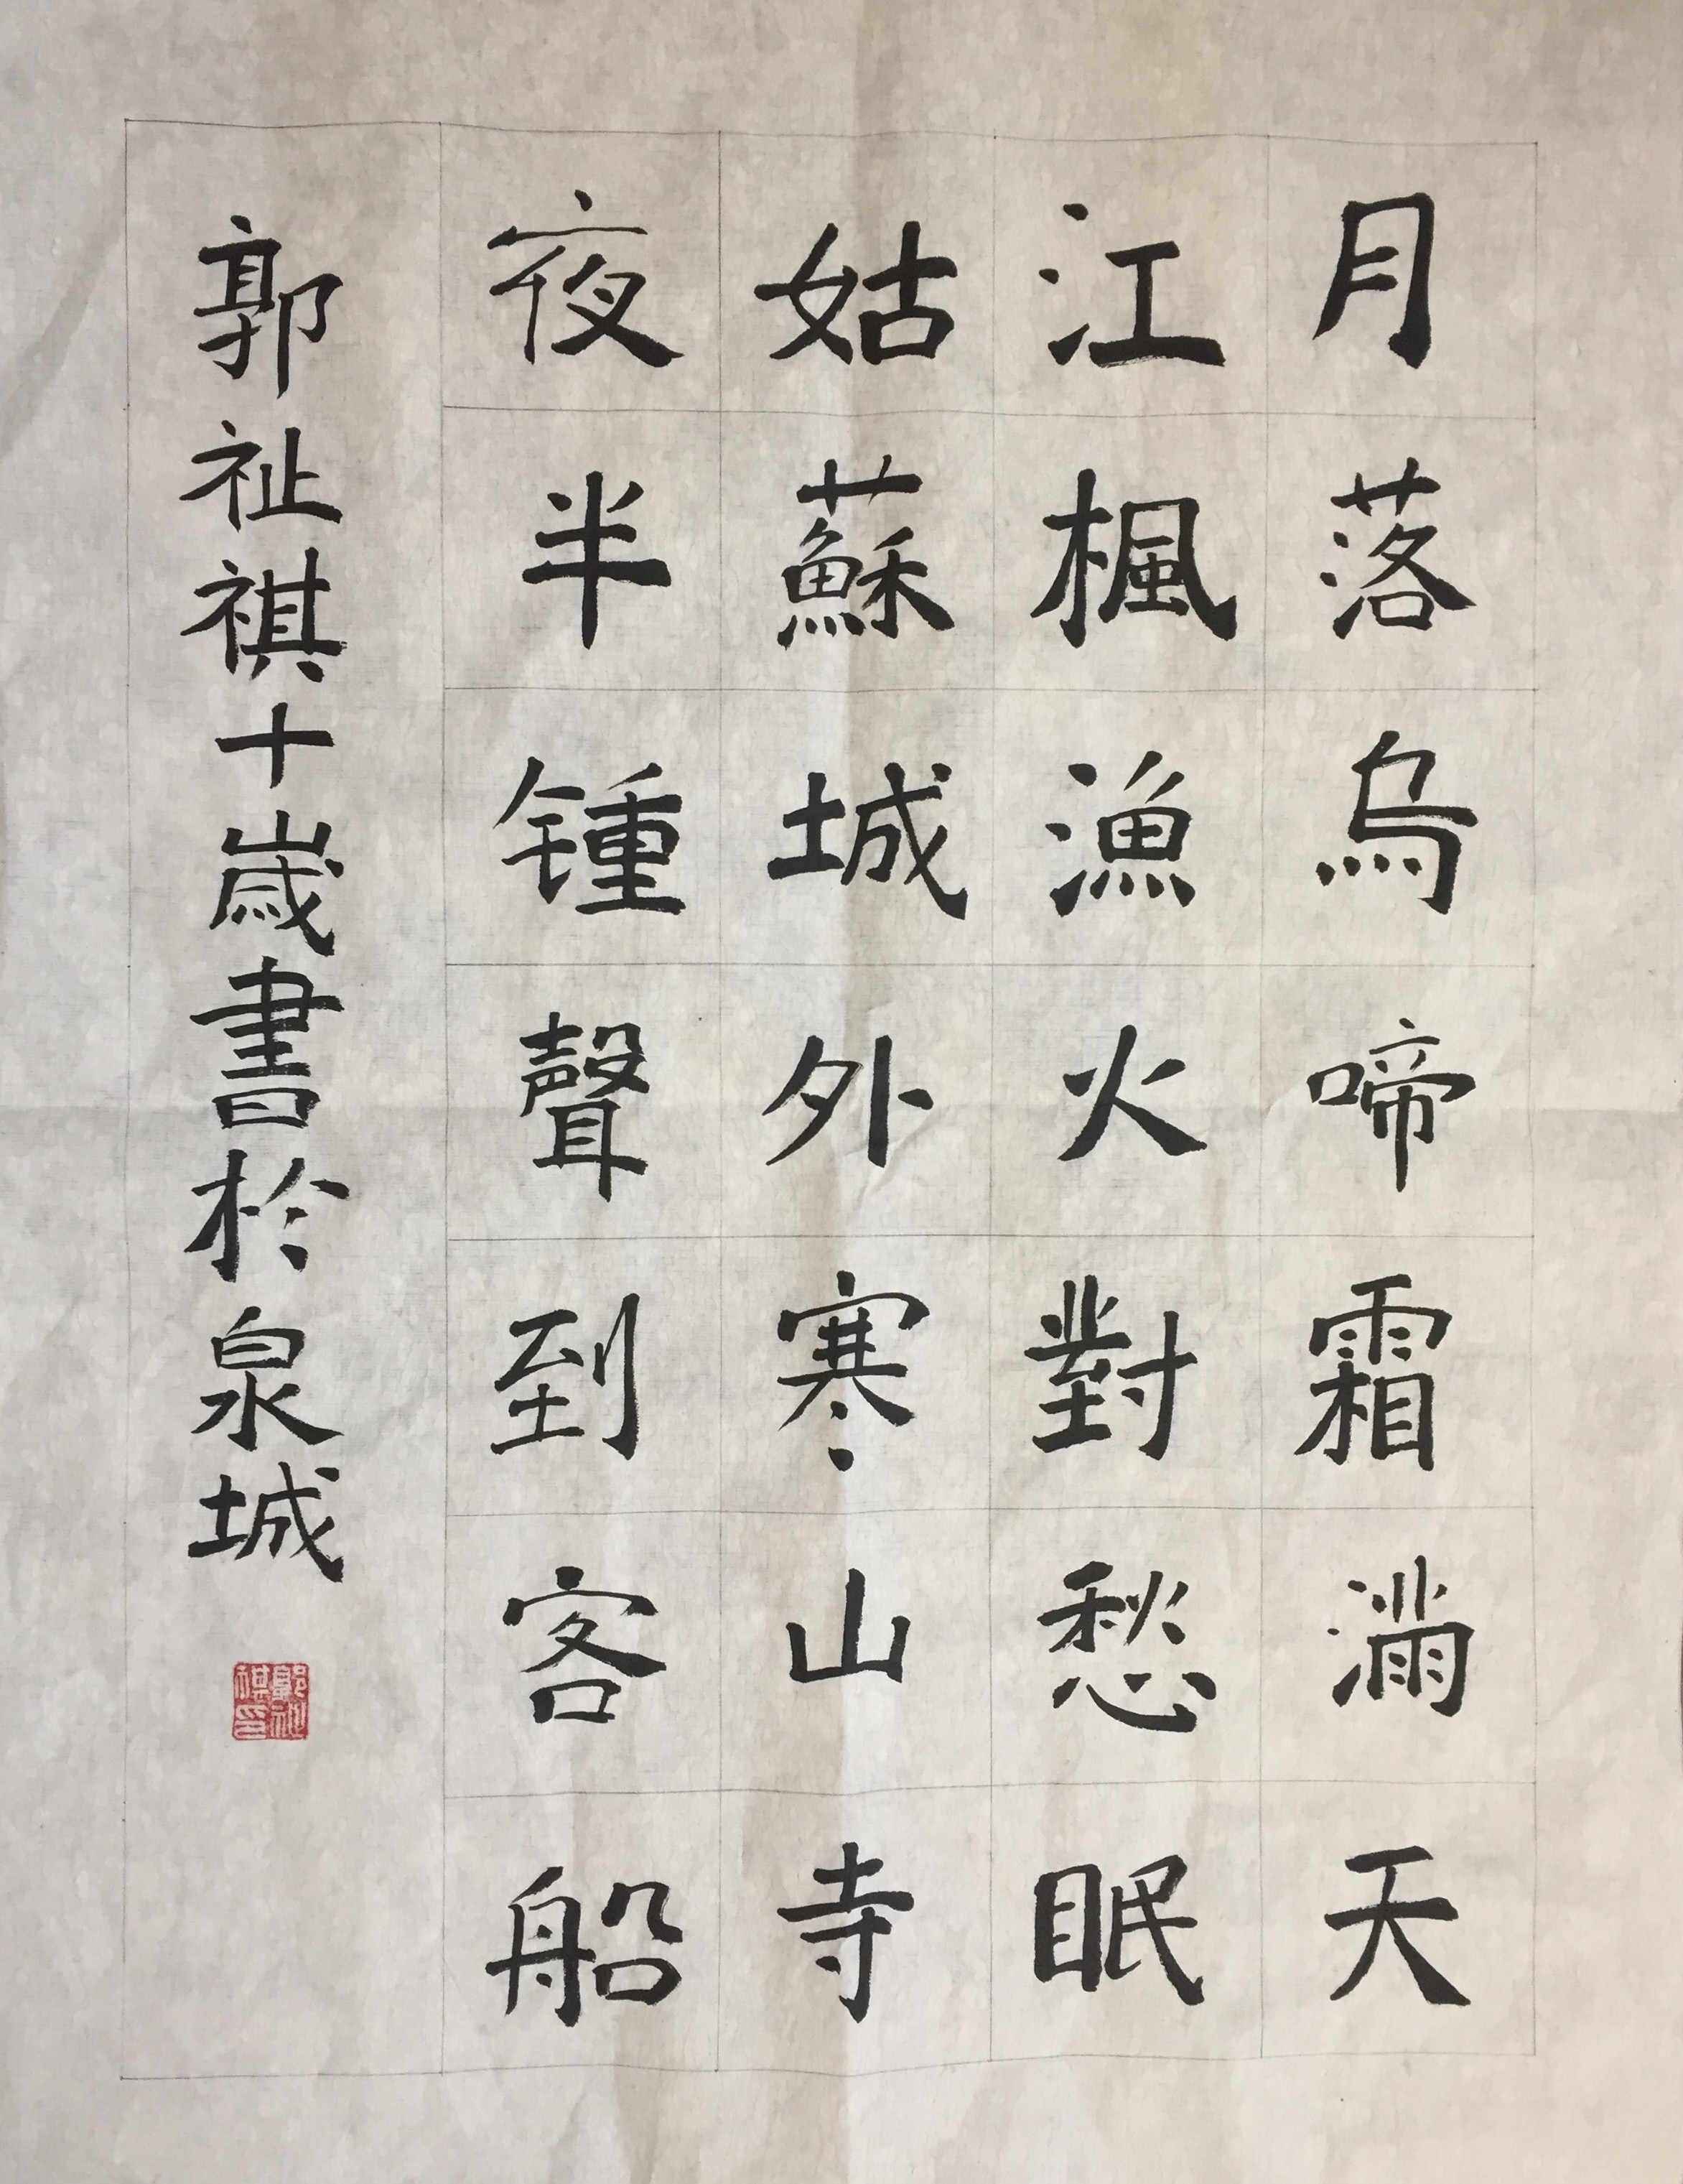 月落烏啼霜滿天
江楓漁火對愁眠
姑蘇城外寒山寺
夜半锺聲到客船
郭祉祺十歲書於泉城